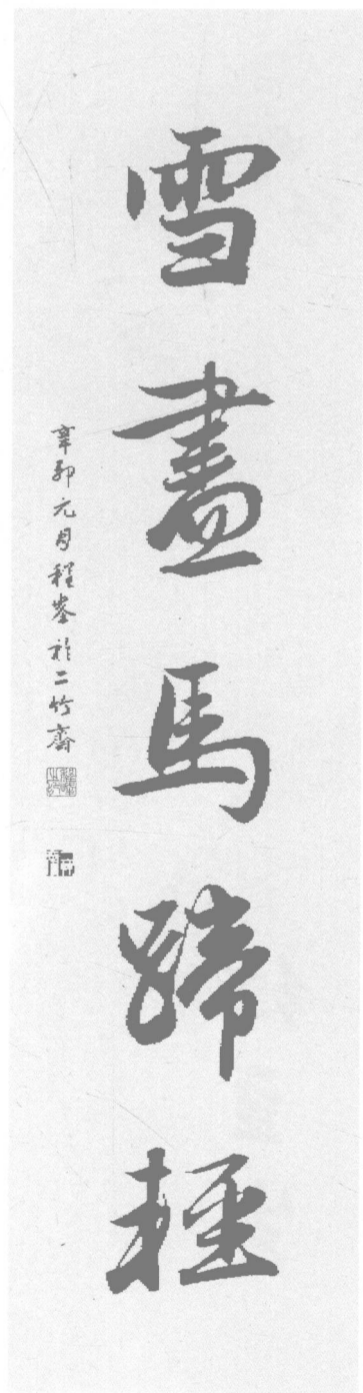 雪盡馬蹄輕
辛卯元月程峯於二竹齋